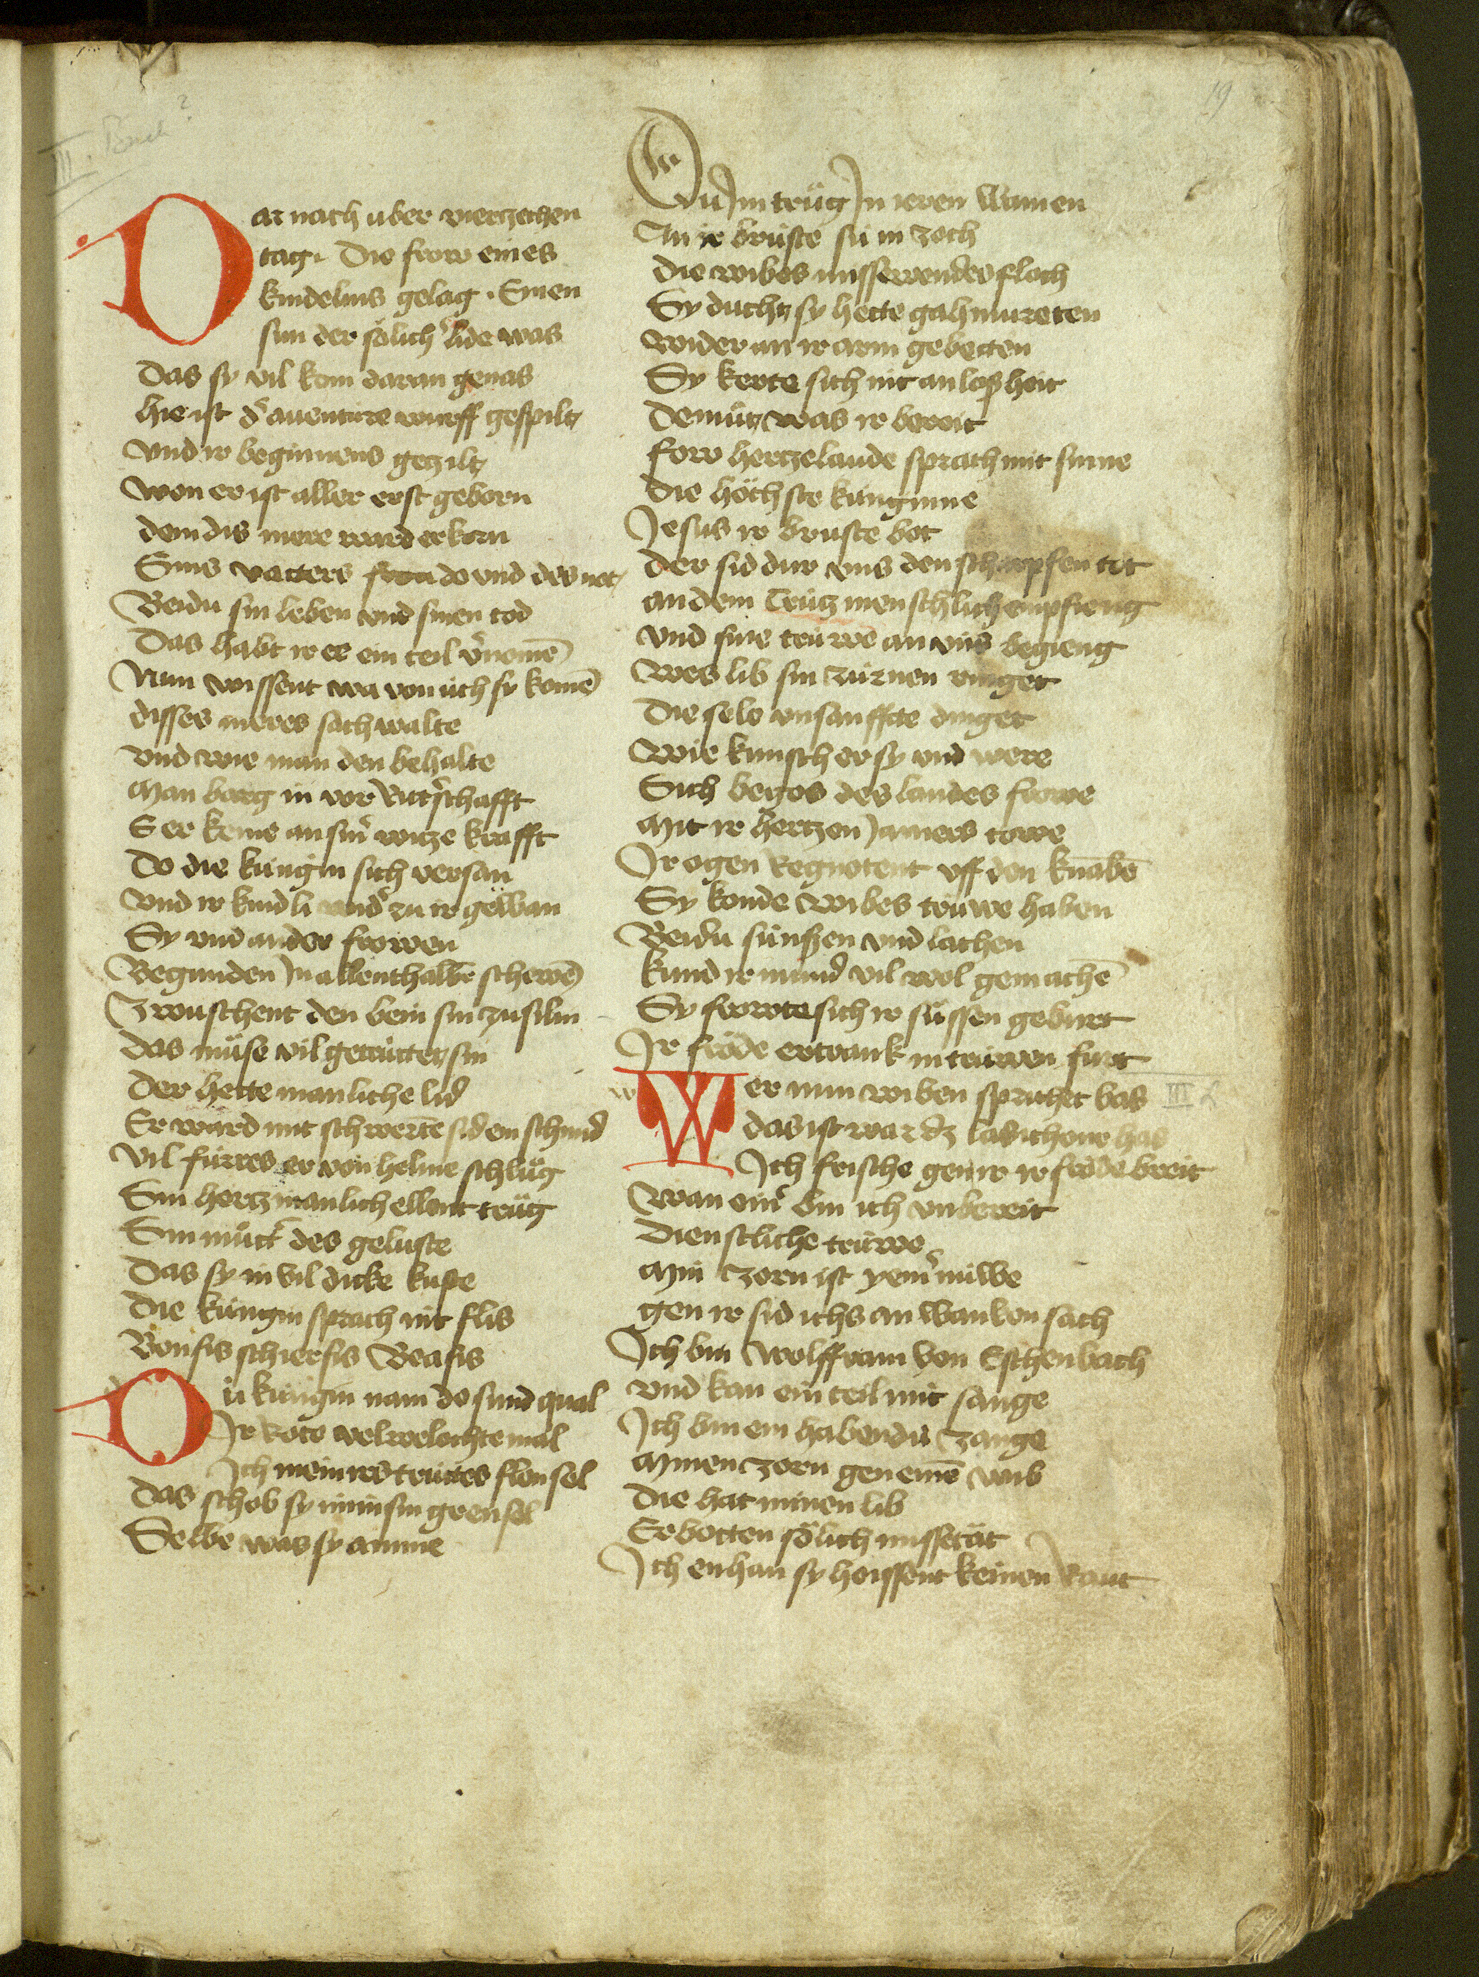 III. Buch ?
19
Dar nach uber vierzechen
tag. Die frow eines
kindelins gelag. Einen
sun der sölich lide was
Das sy vil kom daran genas
hie ist d' auenture wurff gespiltz
vnd ir beginnens geziltz
won er ist aller erst geborn
dem dis mere ward erkorn
Sins vatters frou do vnd des not
Beidu sin leben vnd sinen tod
Das habt ir ee ein teil v'nomē
Nun wissent wa von üch sy komē
disses meres sach walte
vnd wie man den behalte
Man barg in vor Ritt'schafft
E er keme an sin' witze krafft
Do die küngin sich versan
vnd ir kindli wid' zu ir gewan
Sy vnd ander frowen
Begunden In allenthalbē schewē
Zwuschent den bein sin zusilin
das müse vil getrüttetz sin
Der hette manliche lid'
Er ward mit schwertē sid ein schmid
vil fürres er von helme schlüg
Sin hertz manlich ellent trüg
Sin mütt' des geluste
Das sy in vil dicke kuste
Die küngin sprach mit flis
Bonfis schierfis Beafis
Dü küngin nam do sund qual
Ir Rote velwelochte mal
Ich mein ires trüttes flensel
Das schob sy im in sin grensel
Selbe was sy amme
Du Im trüg In ieren wamen
An ir brüste sü in zoch
die wibes missewendes floch
Sy duchtz sy hette gahmureten
wider an ir arm gebetten
Sy kerte sich nit an loßheit
demütz was ir bereit
frow hertzelaude sprach mit sinne
die höchste künginne
Jesus ir bruste bot
der sid dur vns den scharpfen tot
an dem crütz menschlich empfieng
vnd sine trüwe an vns begieng
wes lib sin zürnen ringet
die sele vnsanffte dinget
wie kunsch er sy vnd were
Sich begos des landes frowe
Mit ir hertzen Jamers towe
Ir ogen Regnotent vff den knabē
Sy konde wibes trüwe haben
Beidu sünfzen vnd lachen
kund ir mund vil wol gemachē
Sy frowte sich ir süssen geburt
Ir fröde ertrank in trüwen furt
Wer nun wiben sprichet bas III 2
das ist war dz las ich one has
Ich frische gen ir ir fröde breit
wan ein' bin ich vnbereit
dienstliche trüwe
Min zorn ist yem' nüwe
gen ir sid ichs an wanken sach
Ich bin Wolffram von Eschenbach
vnd kan ein teil mit sange
Ich bin ein habendü zange
Minen zorn gen einē wib
die hat minen lib
Erbotten sölich missetät
Ich enhan sy hoissent keinen Raut